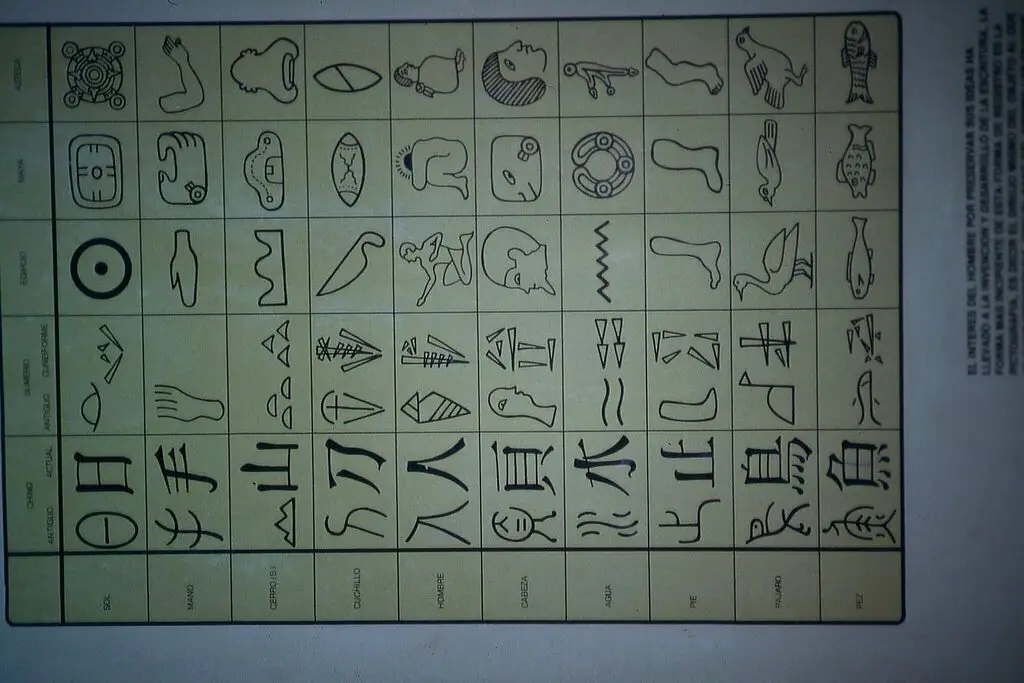 CHINO SUMERIO EGIPCIO MAYA AZTECA
ANTIGUO ACTUAL ANTIGUO CUNEIFORME
SOL 日
MANO 手
CERRO(S) 山
CUCHILLO 刀
HOMBRE 人
CABEZA 頁
AGUA 水
PIE 止
PAJARO 鳥
PEZ 魚
EL INTERES DEL HOMBRE POR PRESERVAR SUS IDEAS HA
LLEVADO A LA INVENCION Y DESARROLLO DE LA ESCRITURA. LA
FORMA MAS INCIPIENTE DE ESTA FORMA DE REGISTRO ES LA
PICTOGRAFIA, ES DECIR EL DIBUJO MISMO DEL OBJETO AL QUE